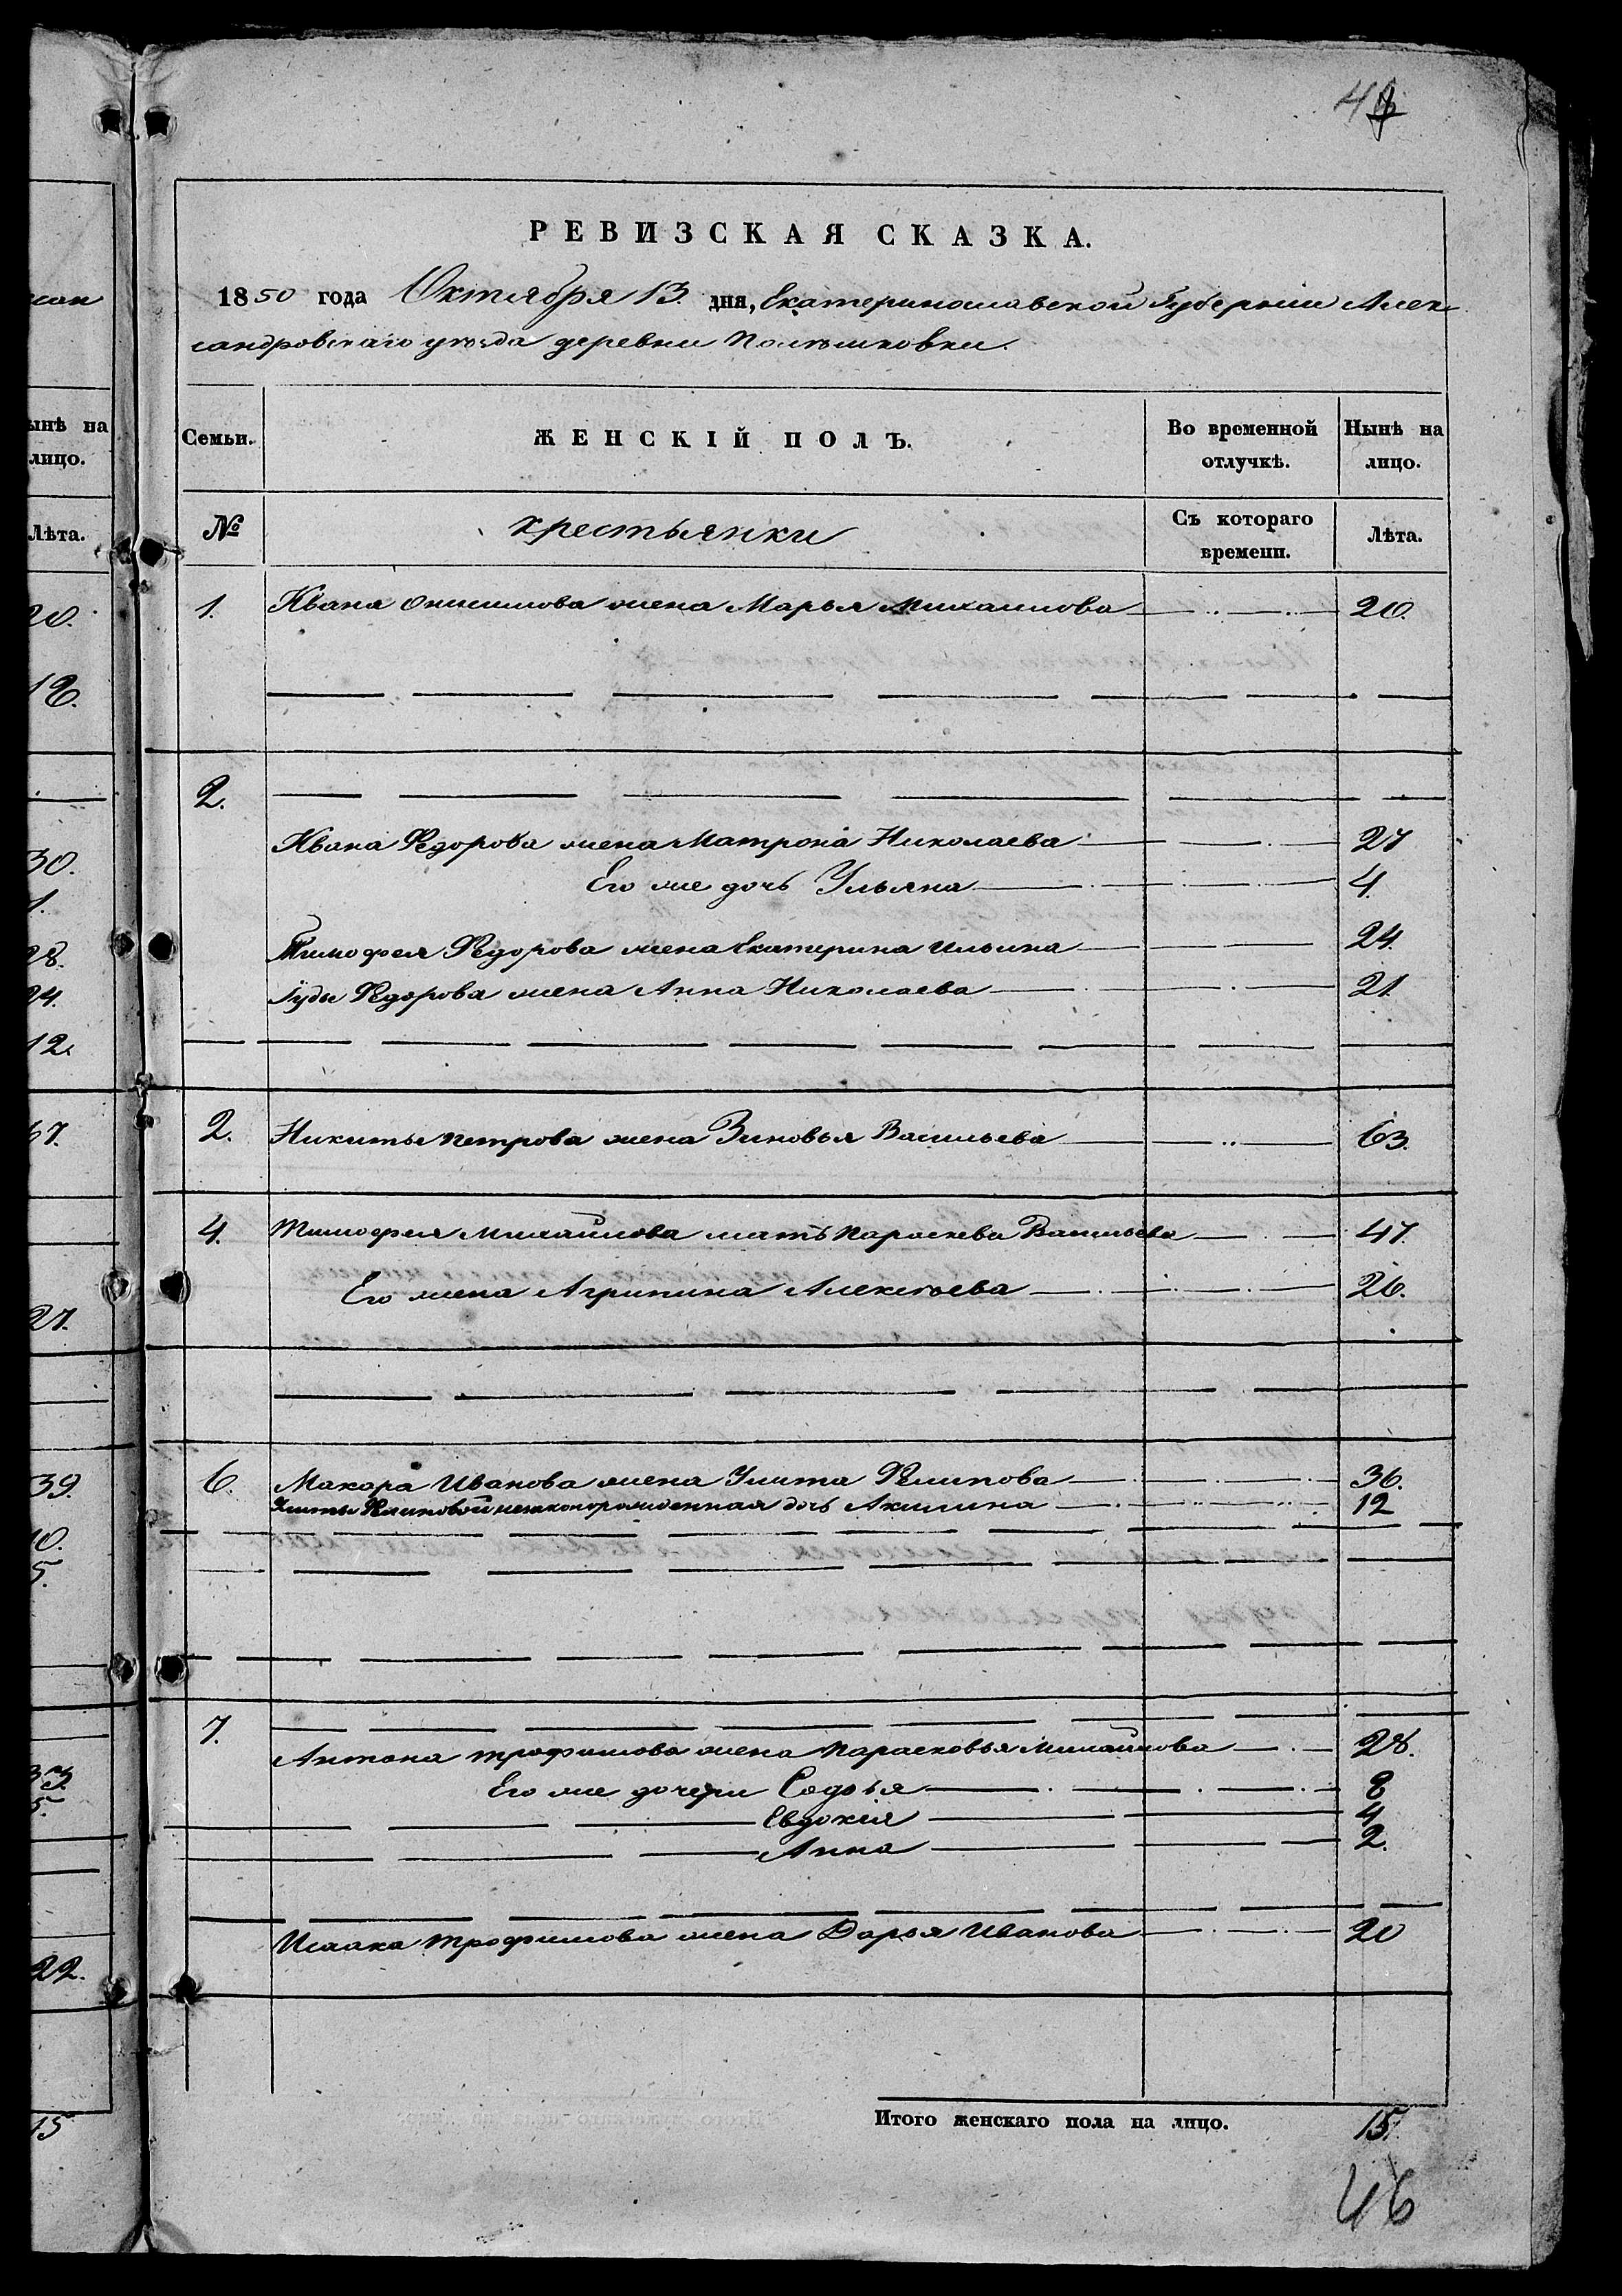 РЕВИЗСКАЯ СКАЗКА.
1850 года Октября 13. дня, Екатеринославской Губерніи Алек
сандровскаго уѣзда деревни
ынѣ на
лицо.
Лѣта.
Семьи.
ЖЕНСКІЙ ПОЛЪ.
Во временной
отлучкѣ.
Нынѣ на
лицо.
№
крестьянки
Съ котораго
времени.
Лѣта.
1. Ивана Онисимова жена Марья Михаилова 20.
2.
Ивана Федорова жена Матрона Николаева 27
Его же дочь Ульяна 4.
Тимофея Федорова жена Екатерина Ильина 24.
Гуды Федорова жена Анна Николаева 21.
2. Никиты Петрова жена Зиновья Васильева 63.
4. Тимофея Михайлова мать Параскева Васильева 47.
Его жена Агрипина Алексѣева 26.
6. Макара Иванова жена Улита Филипова 36.
Улиты Филиповой незаконорожденная дочь Акилина 12
7.
Антона Трофимова жена Парасковья Михайлова 28.
Его же дочери Софья 8
Евдокія 4
Анна 2.
Исаака Трофимова жена Дарья Иванова 20
Итого женскаго пола на лицо. 15.
46